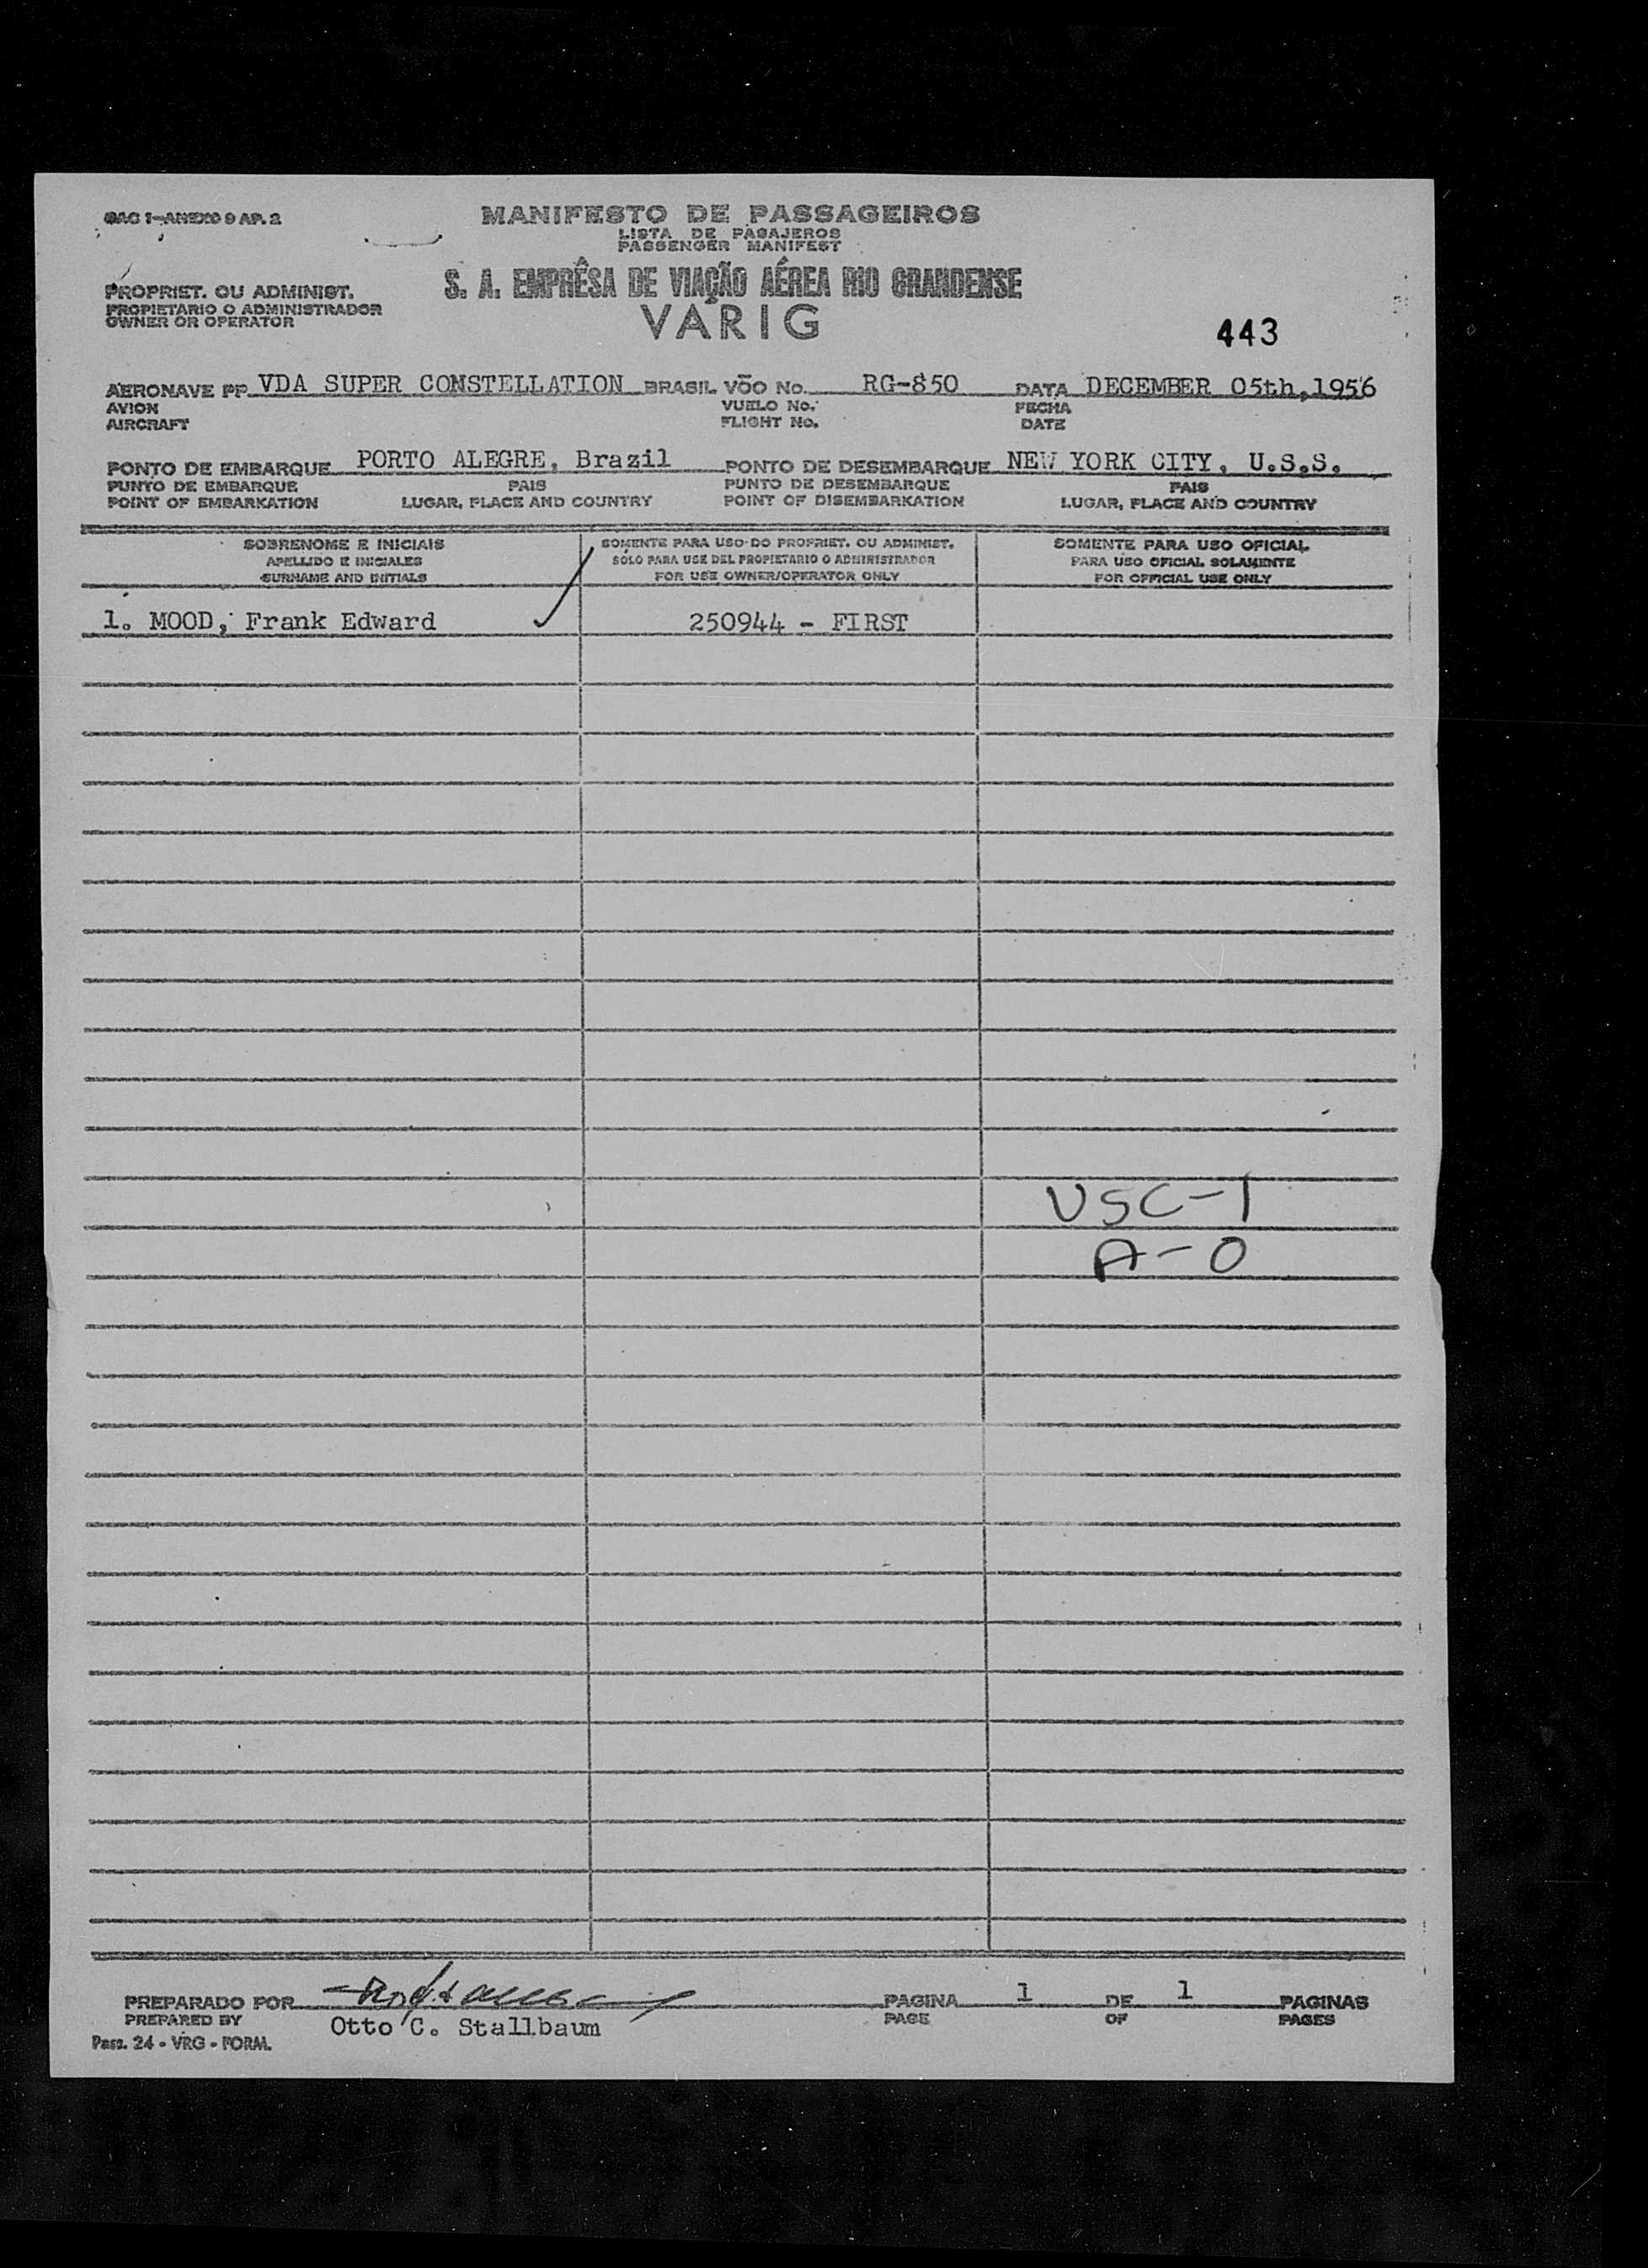 OAC 1-ANEXO 9 AP. 2
MANIFESTO DE PASSAGEIROS
LISTA DE PASAJEROS
PASSENGER MANIFEST
PROPRIET. OU ADMINIST.
PROPIETARIO O ADMINISTRADOR
OWNER OR OPERATOR
S. A. EMPRÊSA DE VIAÇÃO AÉREA RIO GRANDENSE
VARIG
443
AERONAVE PP VDA SUPER CONSTELLATION BRASIL VÕO No. RG-850 DATA DECEMBER 05th,1956
AVION VUELO No. FECHA
AIRCRAFT FLIGHT No. DATE
PONTO DE EMBARQUE PORTO ALEGRE, Brazil PONTO DE DESEMBARQUE NEW YORK CITY, U.S.S.
PUNTO DE EMBARQUE PAIS PUNTO DE DESEMBARQUE PAIS
POINT OF EMBARKATION LUGAR, PLACE AND COUNTRY POINT OF DISEMBARKATION LUGAR, PLACE AND COUNTRY
SOBRENOME E INICIAIS SOMENTE PARA USO DO PROPRIET. OU ADMINIST. SOMENTE PARA USO OFICIAL
APELLIDO E INICIALES SÓLO PARA USE DEL PROPIETARIO O ADMINISTRADOR PARA USO OFICIAL SOLAMENTE
SURNAME AND INITIALS FOR USE OWNER/OPERATOR ONLY FOR OFFICIAL USE ONLY
1. MOOD, Frank Edward 250944 - FIRST
USC-1
A-0
PREPARADO POR PAGINA 1 DE 1 PAGINAS
PREPARED BY Otto C. Stallbaum PAGE OF PAGES
Pass. 24 - VRG - FORM.